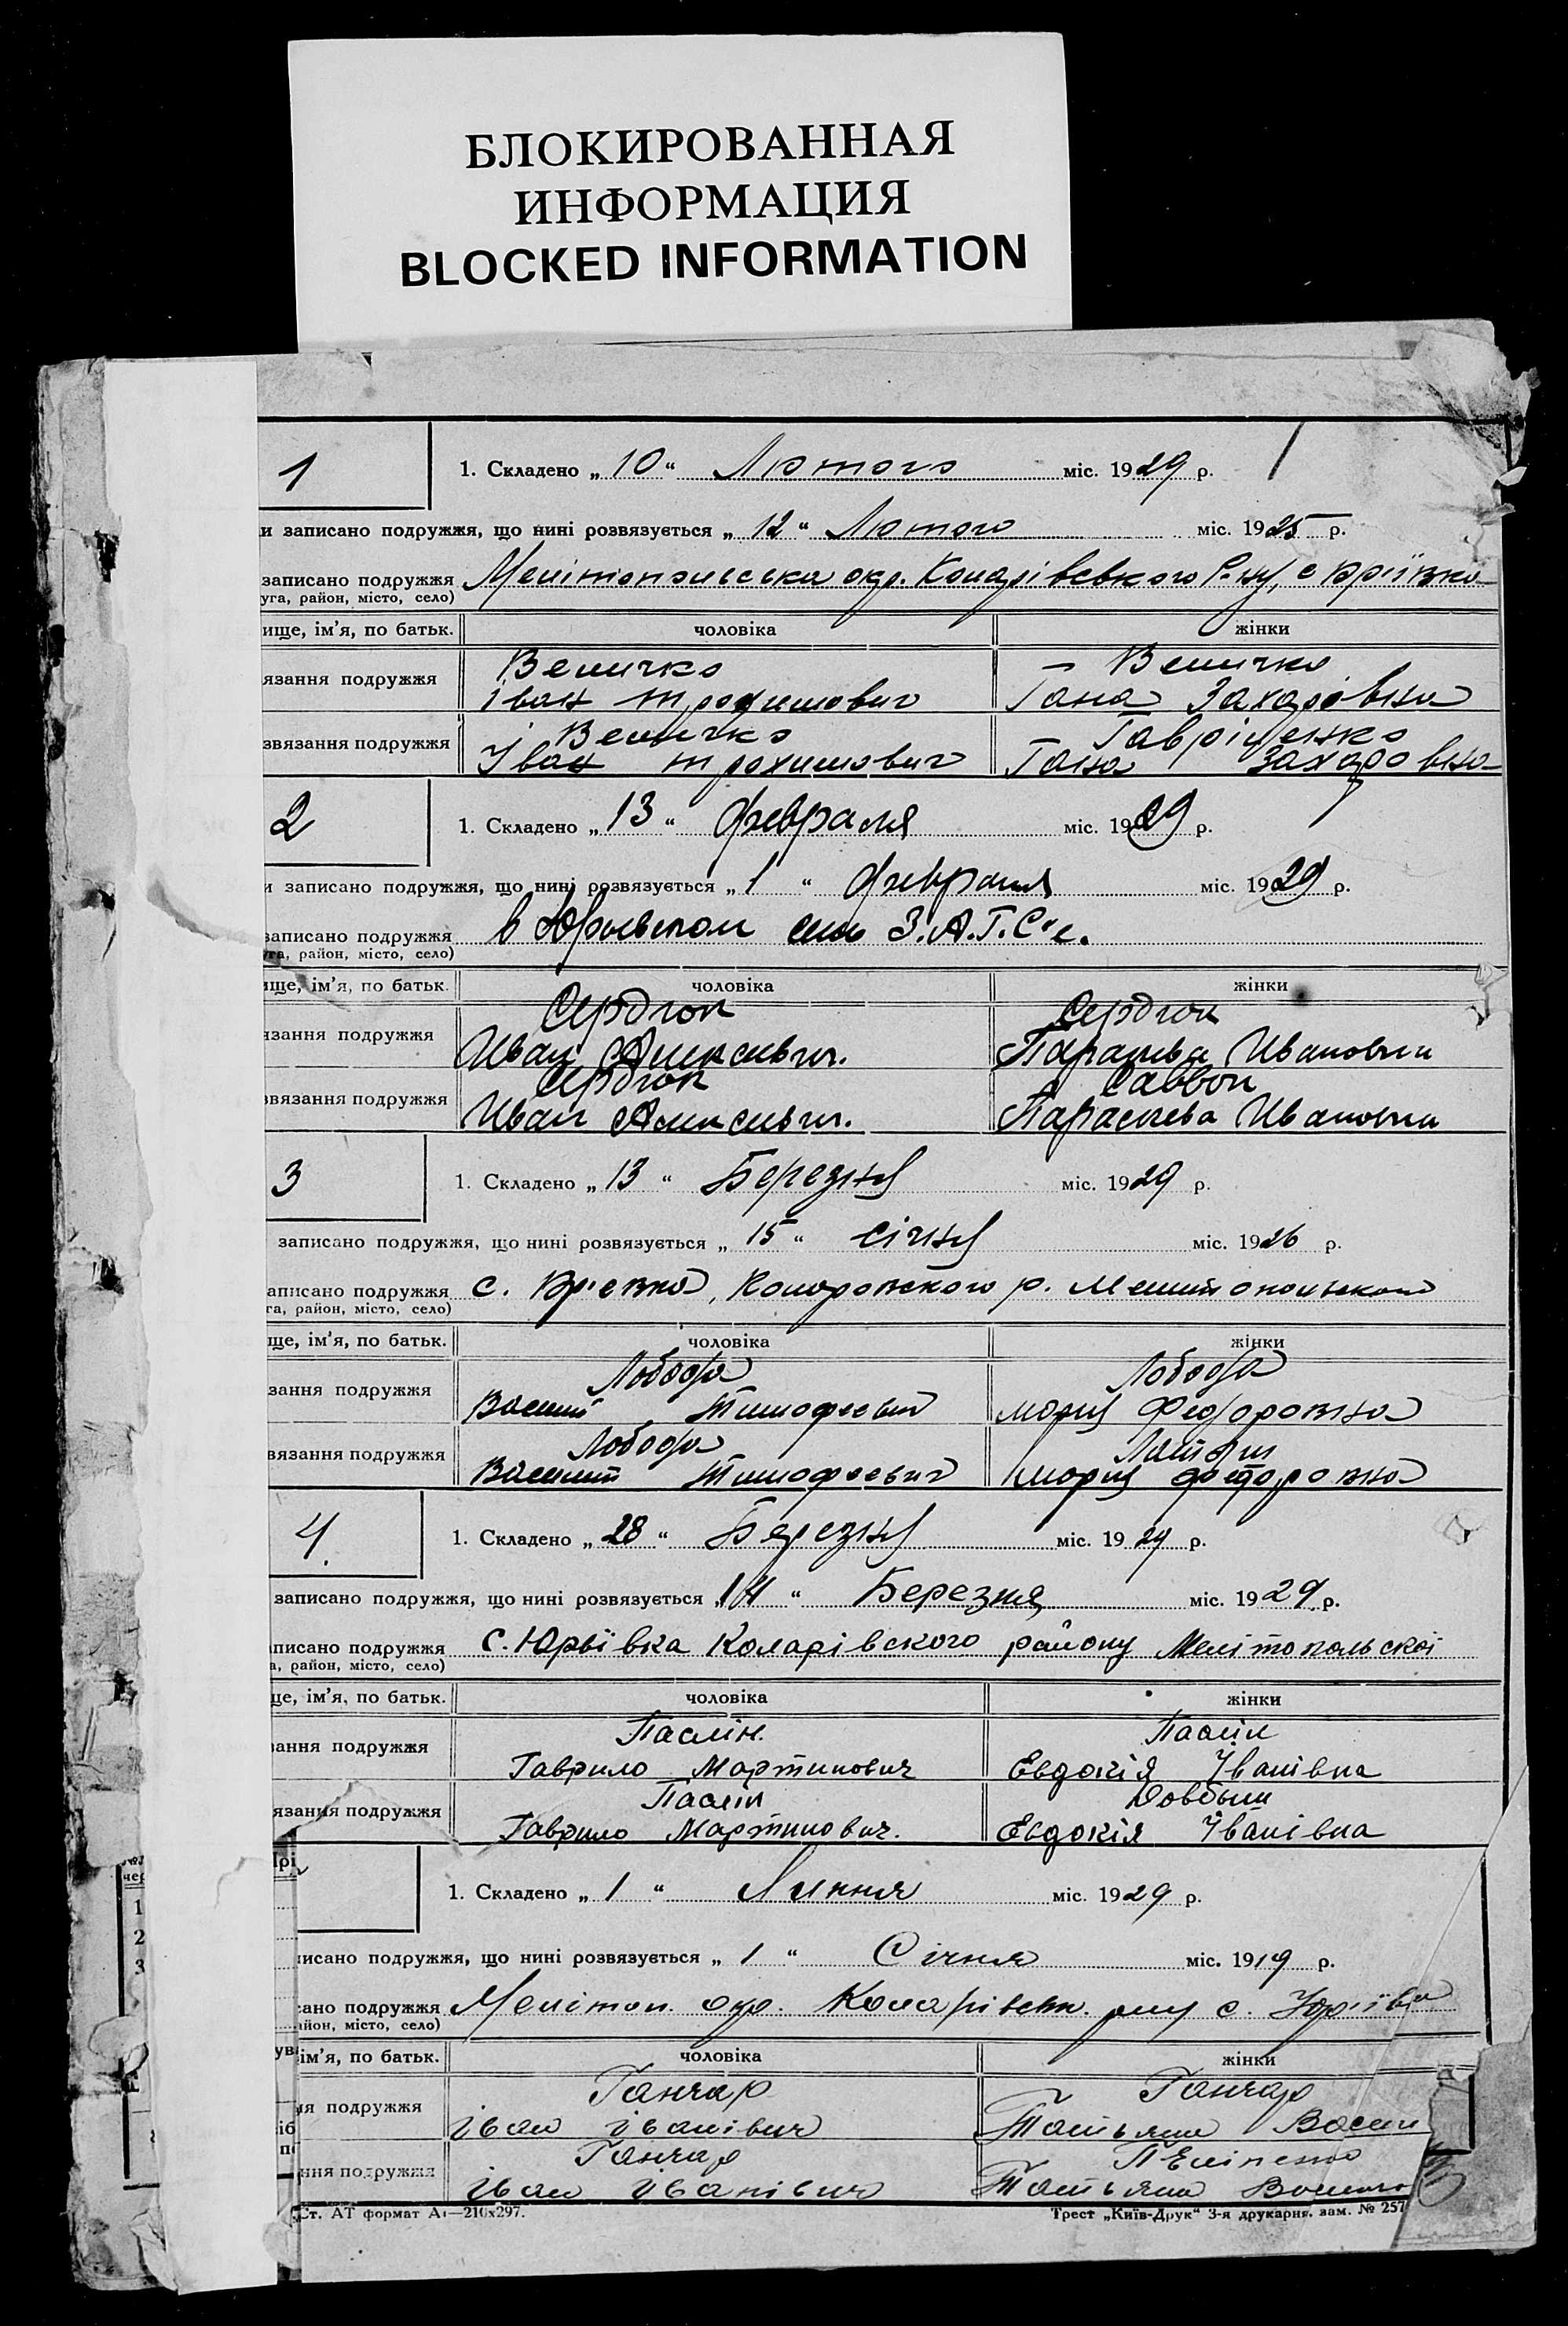 БЛОКИРОВАННАЯ
ИНФОРМАЦИЯ
BLOCKED INFORMATION
1
1. Складено „ 10 “ Лютого міс. 1929 р.
и записано подружжя, що нині розвязується „ 12 “ Лютого міс. 1925 р.
записано подружжя Мелітопольська окр. Коларівського
уга, район, місто, село)
ище, ім’я, по батьк. чоловіка жінки
Величко Величко
язання подружжя
Іван Трохимович Гана Захарівна
Величко Гавріленко
звязання подружжя
Іван Трохимович Гана Захаровна
2
1. Складено „ 13 “ февраля міс. 1929 р.
и записано подружжя, що нині розвязується „ 1 “ февраля міс. 1929 р.
записано подружжя в Юрьевском З.А.Г.С‘е.
уга, район, місто, село)
ище, ім’я, по батьк. чоловіка жінки
Сердюк Сердюк
язання подружжя
Иван Алексеевич. Парасковья Ивановна
Сердюк Саввон
звязання подружжя
Иван Алексеевич. Ивановна
3
1. Складено „ 13 “ Березня міс. 1929 р.
записано подружжя, що нині розвязується „ 15 “ Січня міс. 1926 р.
аписано подружжя с. р.
га, район, місто, село)
ще, ім’я, по батьк. чоловіка жінки
Лобода Лобода
зання подружжя
Василий Тимофеевич Мария Федоровна
Лобода
вязання подружжя
Василий Тимофеевич Мария Федоровна
4.
1. Складено „ 28 “ Березня міс. 1929 р.
записано подружжя, що нині розвязується „ 14 “ Березня міс. 1929 р.
писано подружжя с. Юрьївка Коларівского району Мелітопольскої
а, район, місто, село)
це, ім’я, по батьк. чоловіка жінки
Паслін. Паслін
зання подружжя
Гаврило Мартинович Евдокія Іванівна
Паслін Довбыш
язання подружжя
Гаврило Мартинович. Евдокія Іванівна
1. Складено „ 1 “ Липня міс. 1929 р.
писано подружжя, що нині розвязується „ 1 “ Січня міс. 1919 р.
сано подружжя Мелітоп. окр. Коларівськ. р-ну с. Юріївка
айон, місто, село)
ім’я, по батьк. чоловіка жінки
Ганчар Ганчар
ня подружжя
Іван Іванівич Татьяна
Ганчар
ння подружжя
Іван Іванівич Татьяна
Ст. АТ формат А4—210х297. Трест „Київ-Друк“ 3-я друкарня. зам. № 257